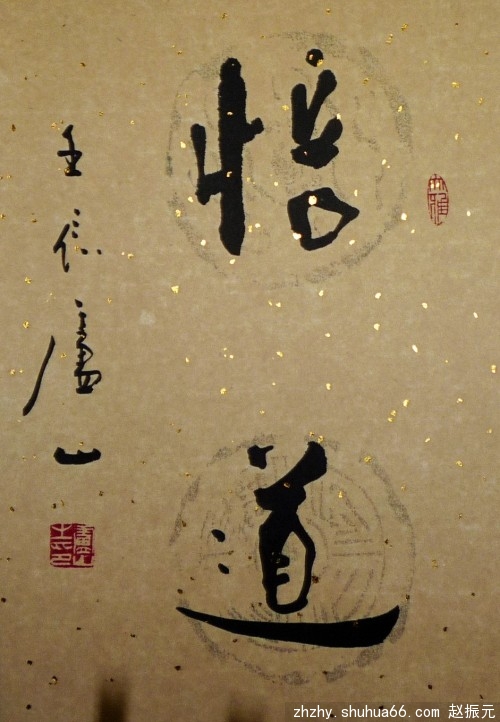 大雅
悟道
壬辰廬山
zhzhy.shuhua66.com 赵振元